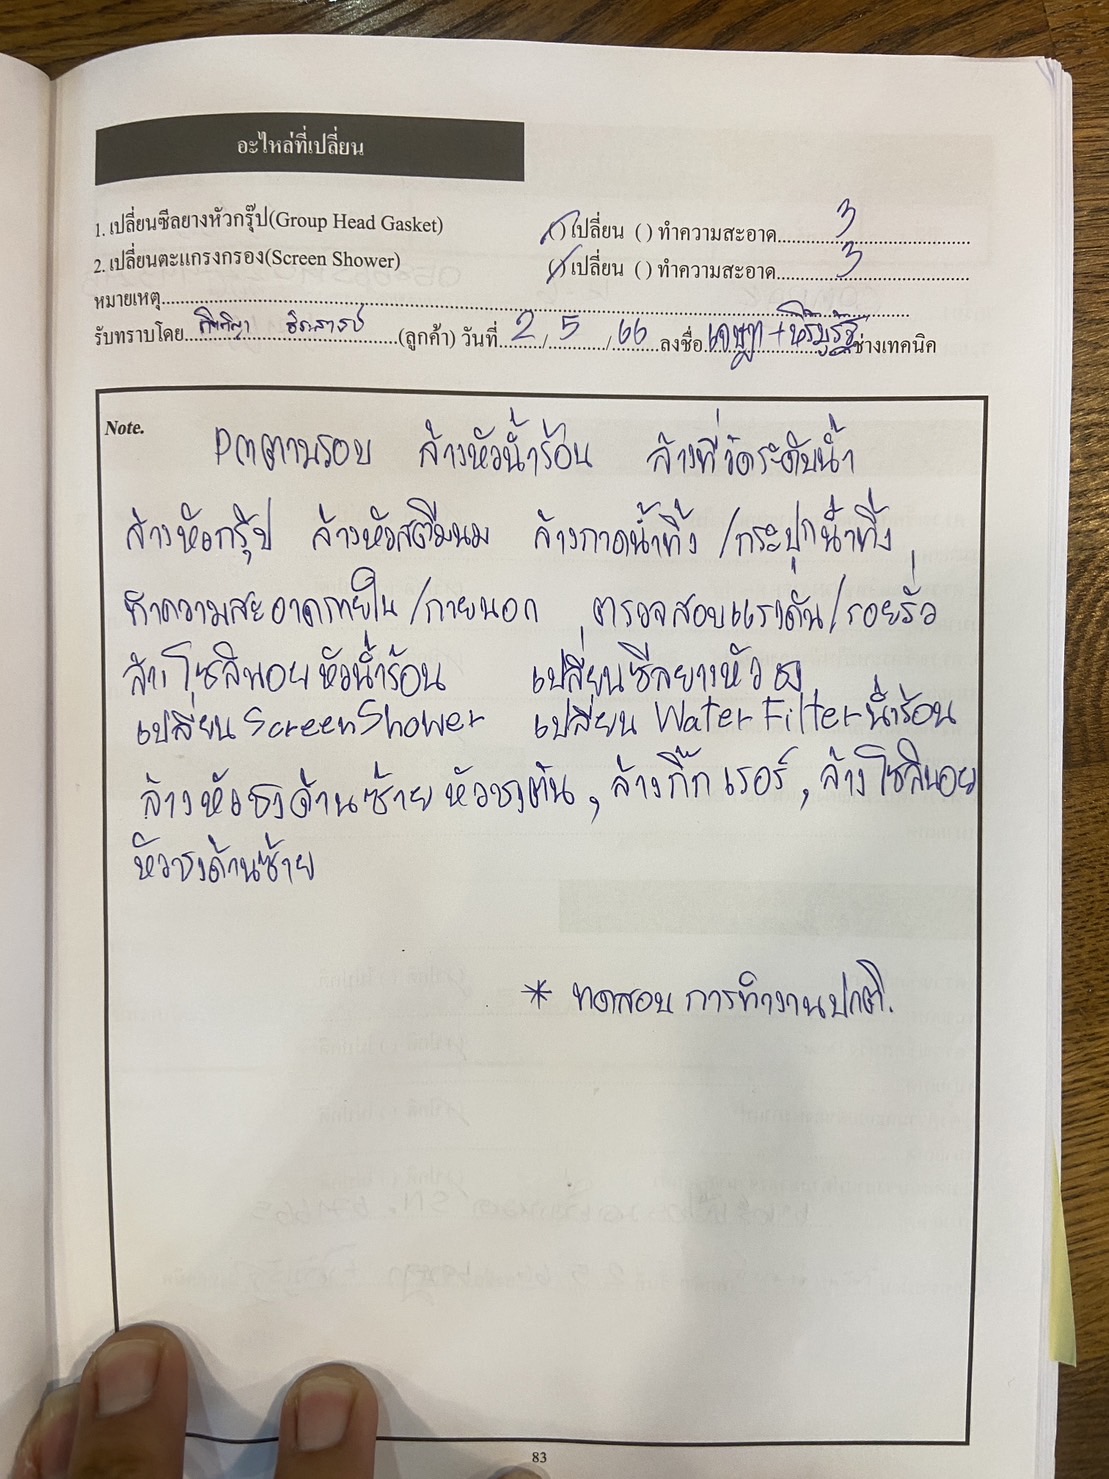 อะไหล่ที่เปลี่ยน
1. เปลี่ยนซีลยางหัวกรุ๊ป(Group Head Gasket) (/) เปลี่ยน ( ) ทำความสะอาด 3
2. เปลี่ยนตะแกรงกรอง(Screen Shower) (/) เปลี่ยน ( ) ทำความสะอาด 3
หมายเหตุ
รับทราบโดย (ลูกค้า) วันที่ 2 / 5 / 66 ลงชื่อ ช่างเทคนิค
Note.
PMตามรอบ ล้างหัวน้ำร้อน ล้างที่วัดระดับน้ำ
ล้างหัวกรุ๊ป ล้างหัวสตีมนม ล้างถาดน้ำทิ้ง /กระปุกน้ำทิ้ง
ทำความสะอาดภายใน/ภายนอก ตรวจสอบแรงดัน/รอยรั่ว
ล้างโซลินอยหัวน้ำร้อน เปลี่ยนซีลยางหัวชง
เปลี่ยน Screen Shower เปลี่ยน Water Filter น้ำร้อน
ล้างหัวชงด้านซ้าย หัวชงตัน , ล้างกิ๊กเรอร์ , ล้างโซลินอย
หัวชงด้านซ้าย
* ทดสอบ การทำงานปกติ.
83